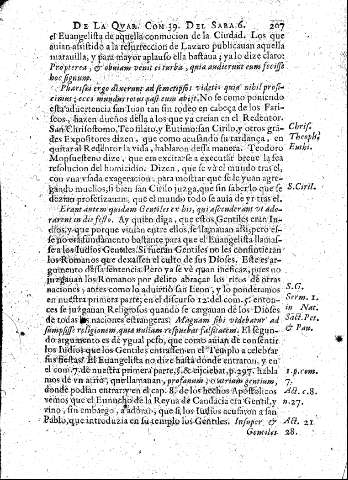 DE LA QVAR. CON 39. DEL SABA. 6. 207
el Euangelista de aquella conmocion de la Ciudad. Los que
auian assistido a la resurreccion de Lazaro publicauan aquella
marauilla, y para mayor aplauso ella bastaua; ya lo dize claro:
Propterea, & obuiam venit ei turba, quia audierunt eum fecisse
hoc signum.
Pharisæi ergo dixerunt ad semetipsos videtis quia nihil profi-
cimus? ecce mundus totus post eum abijt. No se como poniendo
esta aduertencia san Iuan tan sin rodeo en cabeça de los Fari-
seos, hazen dueños della a los que ya creian en el Redentor.
San Chrisostomo, Teofilato, y Eutimio san Cirilo, y otros gran-
des Expositores dizen, que como acusando su tardança, en
quitar al Redentor la vida, hablaron dessa manera. Teodoro
Mopsuesteno dize, que era excitarse a executar breue la fea
resolucion del homicidio. Dizen, que se và el mundo tras el,
con vna vsada exageracion, para mostrar que se le yuan agre-
gando muchos, si bien san Cirilo juzga, que sin saber lo que se
dezian profetizaran, que el mundo todo se auia de yr tras el.
Erant autem quidam Gentiles ex his, qui ascenderant vt ado-
rarent in die festo. Ay quien diga, que estos Gentiles eran In-
dios, y que porque viuian entre ellos, se llamauan assi; pero es-
se no era fundamento bastante para que el Euangelista llamas-
se a los Iudios Gentiles. Si fueran Gentiles no les consentieran
los Romanos que dexassen el culto de sus Dioses. Este es ar-
gumento dessa sentencia. Pero ya se vè quan ineficaz, pues no
juzgauan los Romanos por delito abraçar los ritos de otras
naciones, antes como lo aduirtiò san Leon, y lo ponderamos
en nuestra primera parte; en el discurso 12. del com. 5. enton-
ces se juzgauan Religiosos quando se cargauan de los Dioses
de todas las naciones estrangeras. Magnam sibi videbatur ad
sumpsisse religionem quia nullam respuebat falsitatem. El segun-
do argumento es de ygual peso, que como auian de consentir
los Iudios que los Gentiles entrassen en el Templo a celebrar
sus fiestas? El Euangelista no dize hasta donde entraron, y en
el com. 7. de nuestra primera parte, §. & eijciebat, p. 297. habla
mos de vn atrio, que llamauan, profanum, varietum gentium,
donde podian entrar, y en el cap. 8. de los hechos Apostolicos
vemos que el Eunucho de la Reyna de Candacia era Gentil, y
vino, sin embargo, a adorar, que si los Iudios acusaron a san
Pablo, que introduzia en su templo los Gentiles. Insuper &
Gentiles
Chrisost.
Theoph.
Euthi.
S. Ciril.
S. G.
Serm. 1.
in Nat.
Sāct. Pet.
& Pau.
1. p. com.
7.
Act. c. 8.
n. 27.
Act. 21
28.